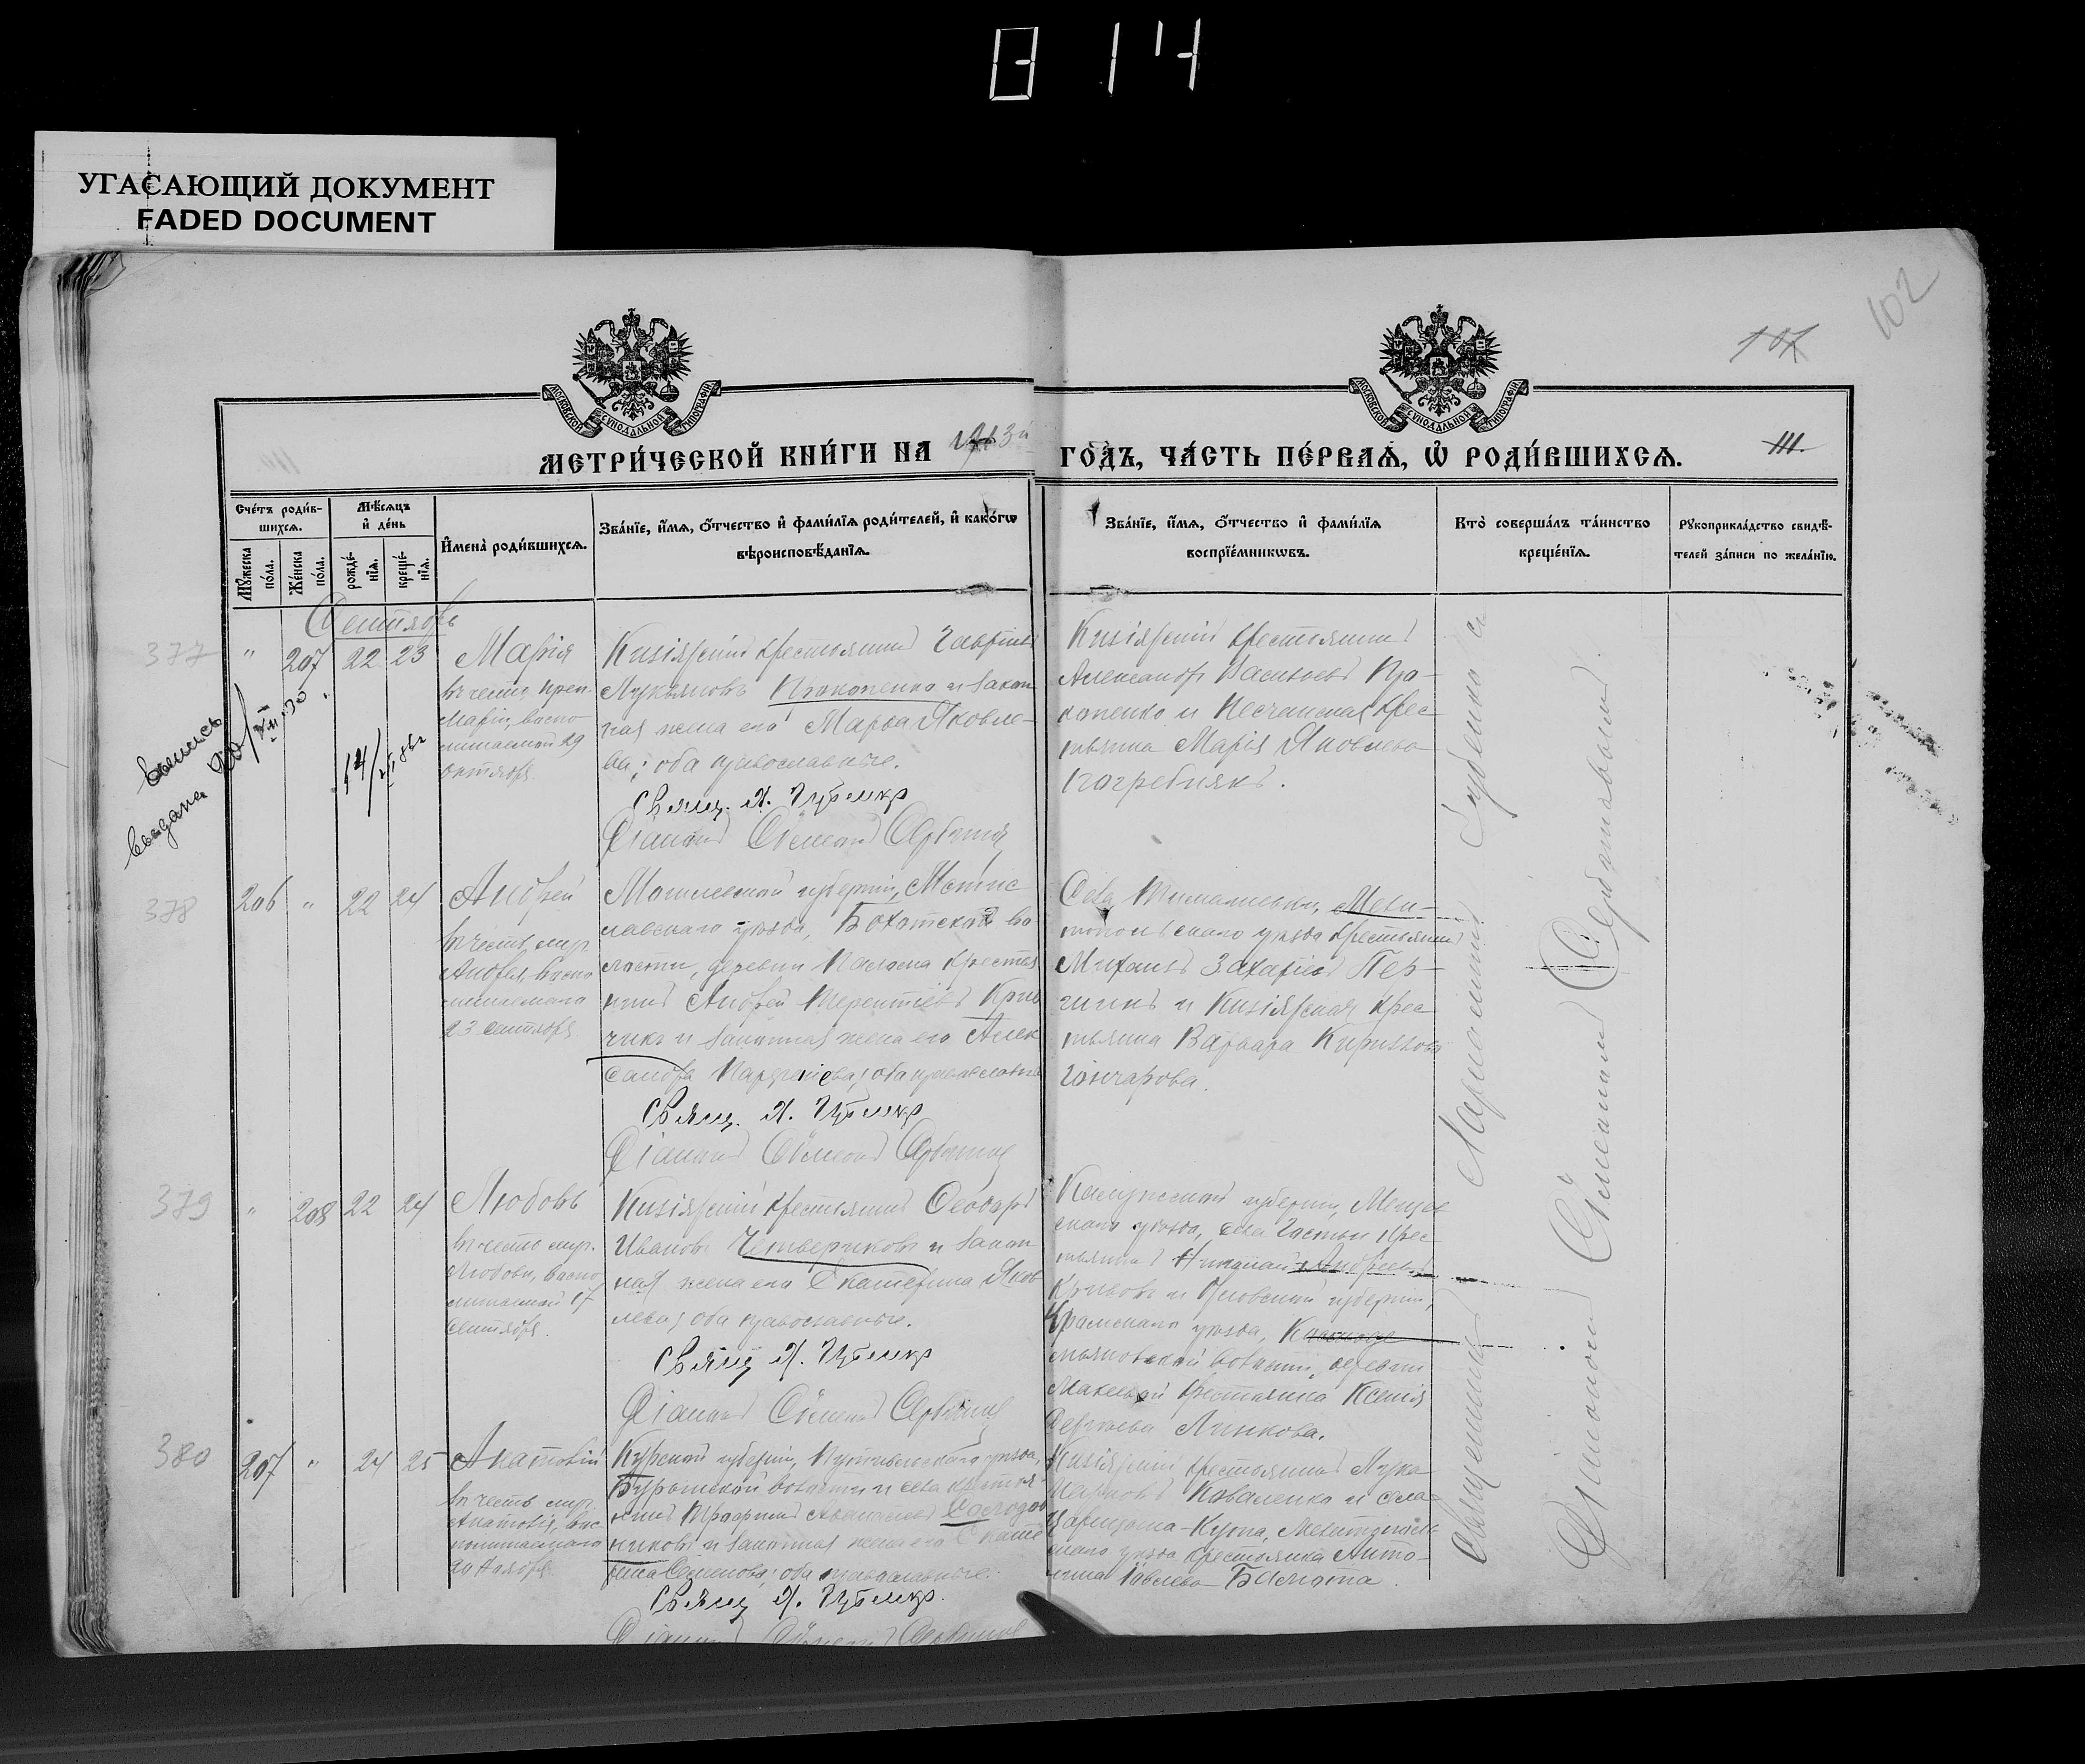 В 14
УГАСАЮЩИЙ ДОКУМЕНТ
FADED DOCUMENT
102
107
МОСКОВСКОЙ СѴНОДАЛЬНОЙ ТИПОГРАФІИ
МОСКОВСКОЙ СѴНОДАЛЬНОЙ ТИПОГРАФІИ
МЕТРИ́ЧЕСКОЙ КНИ́ГИ НА 1913й ГО́ДЪ, ЧА́СТЬ ПЕ́РВАѦ, Ѡ҆ РОДИ́ВШИХСѦ.
111.
Сче́тъ роди́в-
шихсѧ.
Мꙋ́жеска
по́ла.
Же́нска
по́ла.
Мѣ́сѧцъ
и҆ де́нь
рожде́-
нїѧ.
креще́-
нїѧ.
И҆мена̀ роди́вшихсѧ.
Зва́нїе, и҆́мѧ, ѻ҆́тчество и҆ фами́лїѧ роди́телей, и҆ како́гѡ
вѣроисповѣ́данїѧ.
Зва́нїе, и҆́мѧ, ѻ҆́тчество и҆ фами́лїѧ
воспрїе́мникѡвъ.
Кто̀ соверша́лъ та́инство
креще́нїѧ.
Рꙋкоприкла́дство свидѣ́-
телей за́писи по жела́нїю.
Сентябрь
377
" 207 22 23
Марія
въ честь преп.
Маріи, воспо-
минаемой 29
октября.
Кизіярскій крестьянинъ Гавріилъ
Лукьяновъ Прокопенко и закон
ная жена его Марѳа Яковле-
ва; оба православные.
Свящ. Л. Губенко
Діаконъ Сѵмеонъ
Кизіярскій крестьянинъ
Александръ Васильевъ Про-
копенко и Песчанская крес
тьянка Марія Яковлева
Погребнякъ.
выпись
выдана
378
206 " 22 24
Андрей
въ честь муч.
Андрея, воспо
минаемаго
23 сентября.
Могилевской губерніи, Мстис
лавскаго уѣзда, Бохотской во
лости, деревни крестья
нинъ Андрей Терентіевъ Крив
чикъ и законная жена его Алек
сандра Парѳеніева; оба православные
Свящ. Л. Губенко
Діаконъ Сѵмеонъ
Села Тимашевки, Мели-
топольскаго уѣзда крестьянинъ
Михаилъ Захаріевъ Пер-
чикъ и Кизіярская крес
тьянка Варвара Кириллова
Гончарова.
379
" 208 22 24
Любовь
въ честь муч.
Любови, воспо
минаемой 17
сентября.
Кизіярскій крестьянинъ Ѳеодоръ
Ивановъ Четвериковъ и закон
ная жена его Екатерина Яков
лева; оба православные.
Свящ. Л. Губенко
Діаконъ Сѵмеонъ
Калужской губерніи, Мещов
скаго уѣзда, села крес
тьянинъ Николай Андреевъ
Кривовъ и Орловской губерніи,
Кромскаго уѣзда,
волости, деревни
Макеевой крестьянка Ксенія
Сергѣева Линкова.
380
207 " 24 25
Анатолій
въ честь муч.
Анатолія, вос
поминаемаго
20 Ноября.
Курской губерніи, Путивльскаго уѣзда,
Бурынской волости и села крестья
нинъ Трофимъ Аѳанасіевъ
никовъ и законная жена его Екате
рина Семенова; оба православные.
Свящ. Л. Губенко.
Діаконъ Сѵмеонъ
Кизіярскій крестьянинъ Лука
Марковъ Коваленко и села
Царицына-Кута, Мелитополь
скаго уѣзда крестьянка Анто-
нина Іовлева
Священникъ Лаврентій Губенко съ
Діакономъ Сѵмеономъ